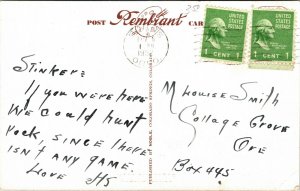 POST Rembrant CARD
UNITED STATES POSTAGE
1 CENT 1
UNITED STATES POSTAGE
1 CENT 1
Stinker:
If you were here
we could hunt
rock, since there
isn't any game.
Love HS
M Louise Smith
Collage Grove
Ore
Box 445